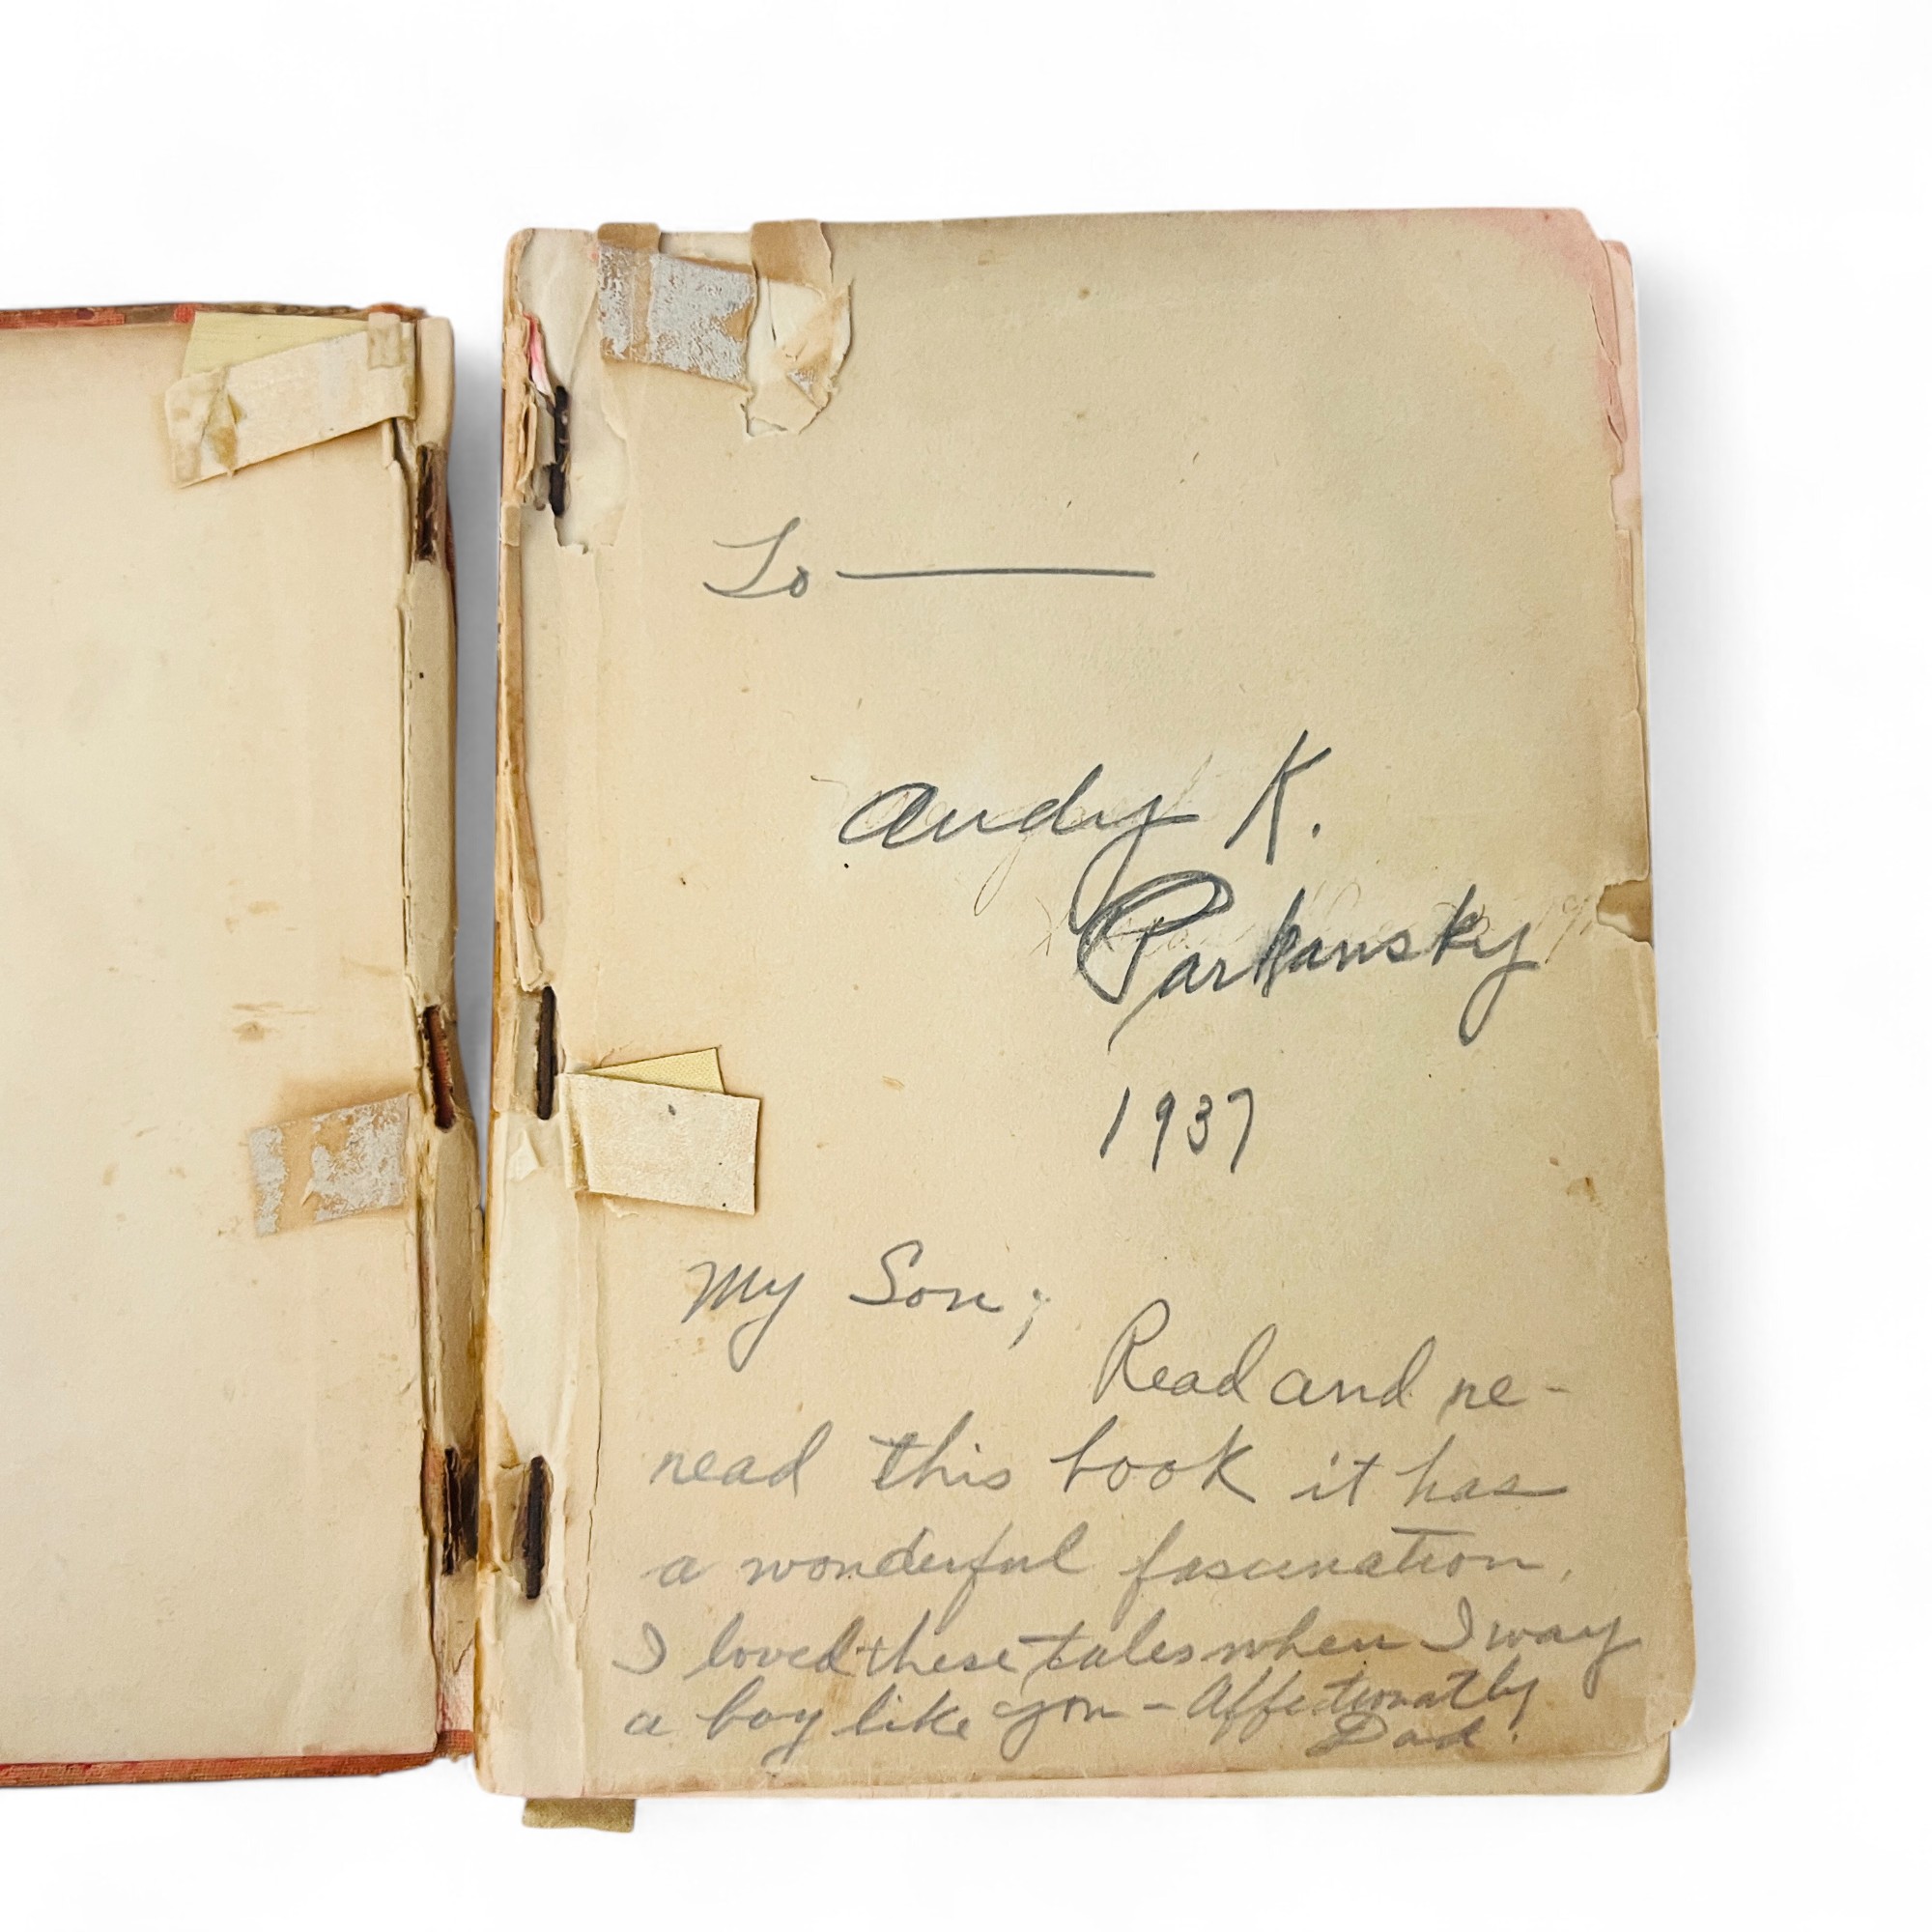 To
Andy K.
Parkansky
1937
My Son;
Read and re-
read this book it has
a wonderful fascination.
I loved these tales when I way
a boy like you - Affectionatly
Dad.